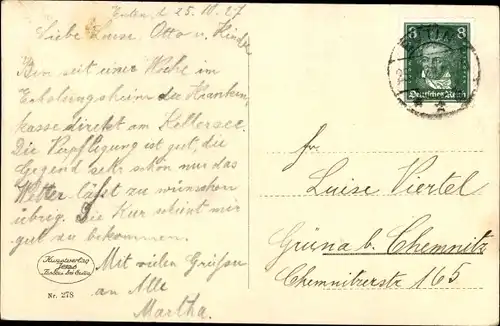 Eutin, d. 25. IV. 27
Liebe Luise, Otto u. Kinder
Bin seit einer Woche im
Erholungsheim der Kranken-
kasse direkt am Kellersee.
Die Verpflegung ist gut, die
Gegend sehr schön nur das
Wetter läßt zu wünschen
übrig. Die Kur scheint mir
gut zu bekommen.
Mit vielen Grüßen
an Alle
Martha.
Kunstverlag
Nr. 278
8 8
Deutsches Reich
EUTIN
Fr.
Luise Viertel
Grüna b. Chemnitz
Chemnitzerstr 165